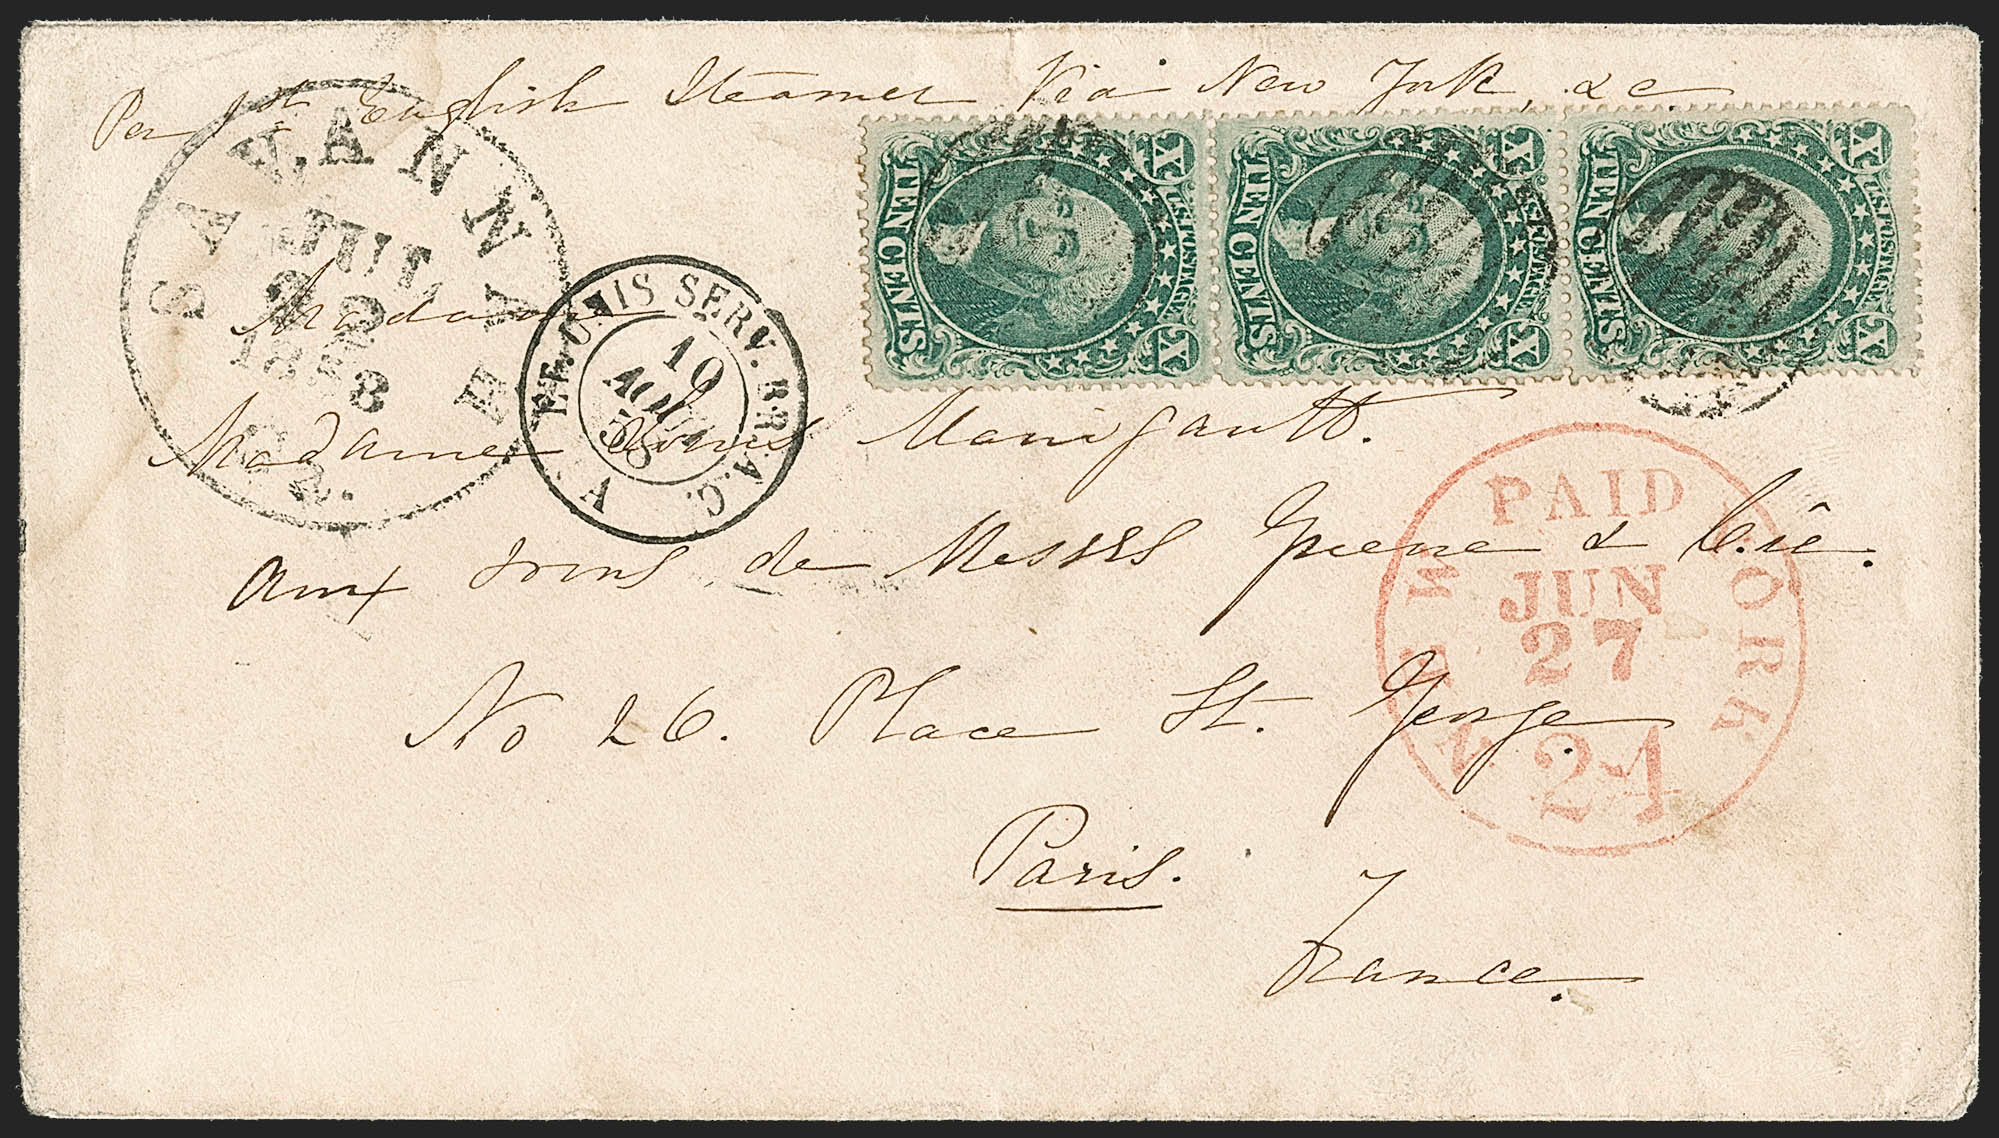 Per 1st English Steamer Via New York, &c.
SAVANNAH
JUL
22
1858
GA.
U.S. POSTAGE
X X
TEN CENTS
U.S. POSTAGE
X X
TEN CENTS
U.S. POSTAGE
X X
TEN CENTS
Madame
ET. UNIS SERV. BR. A.C.
10
AOUT
58
A
Madame Louis Manigault.
aux soins de Messrs Greene & Cie.
NEW YORK
PAID
JUN
27
24
No 26. Place St. George.
Paris.
France.